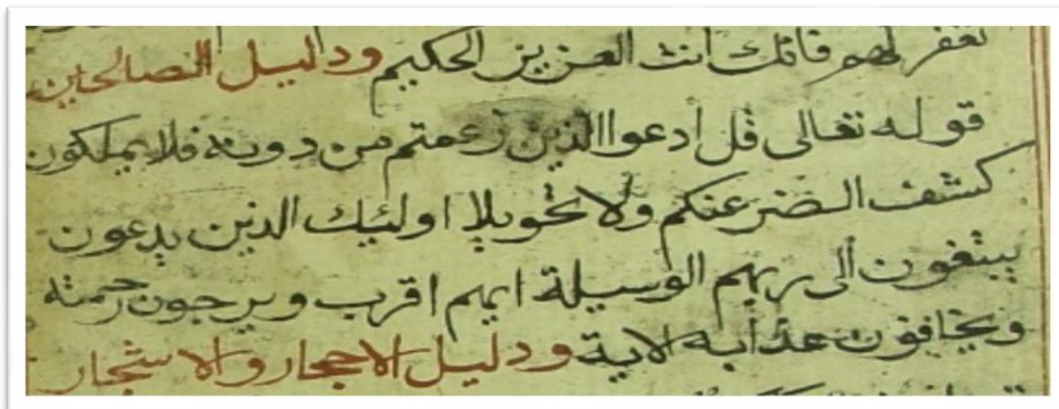 تغفر لهم فانك انت العزيز الحكيم ودليل الصالحين
قوله تعالى قل ادعوا الذين زعمتم من دونه فلا يملكون
كشف الضر عنكم ولا تحويلا اولئك الذين يدعون
يبتغون الى ربهم الوسيلة ايهم اقرب ويرجون رحمته
ويخافون عذابه الاية ودليل الاحجار والاشجار